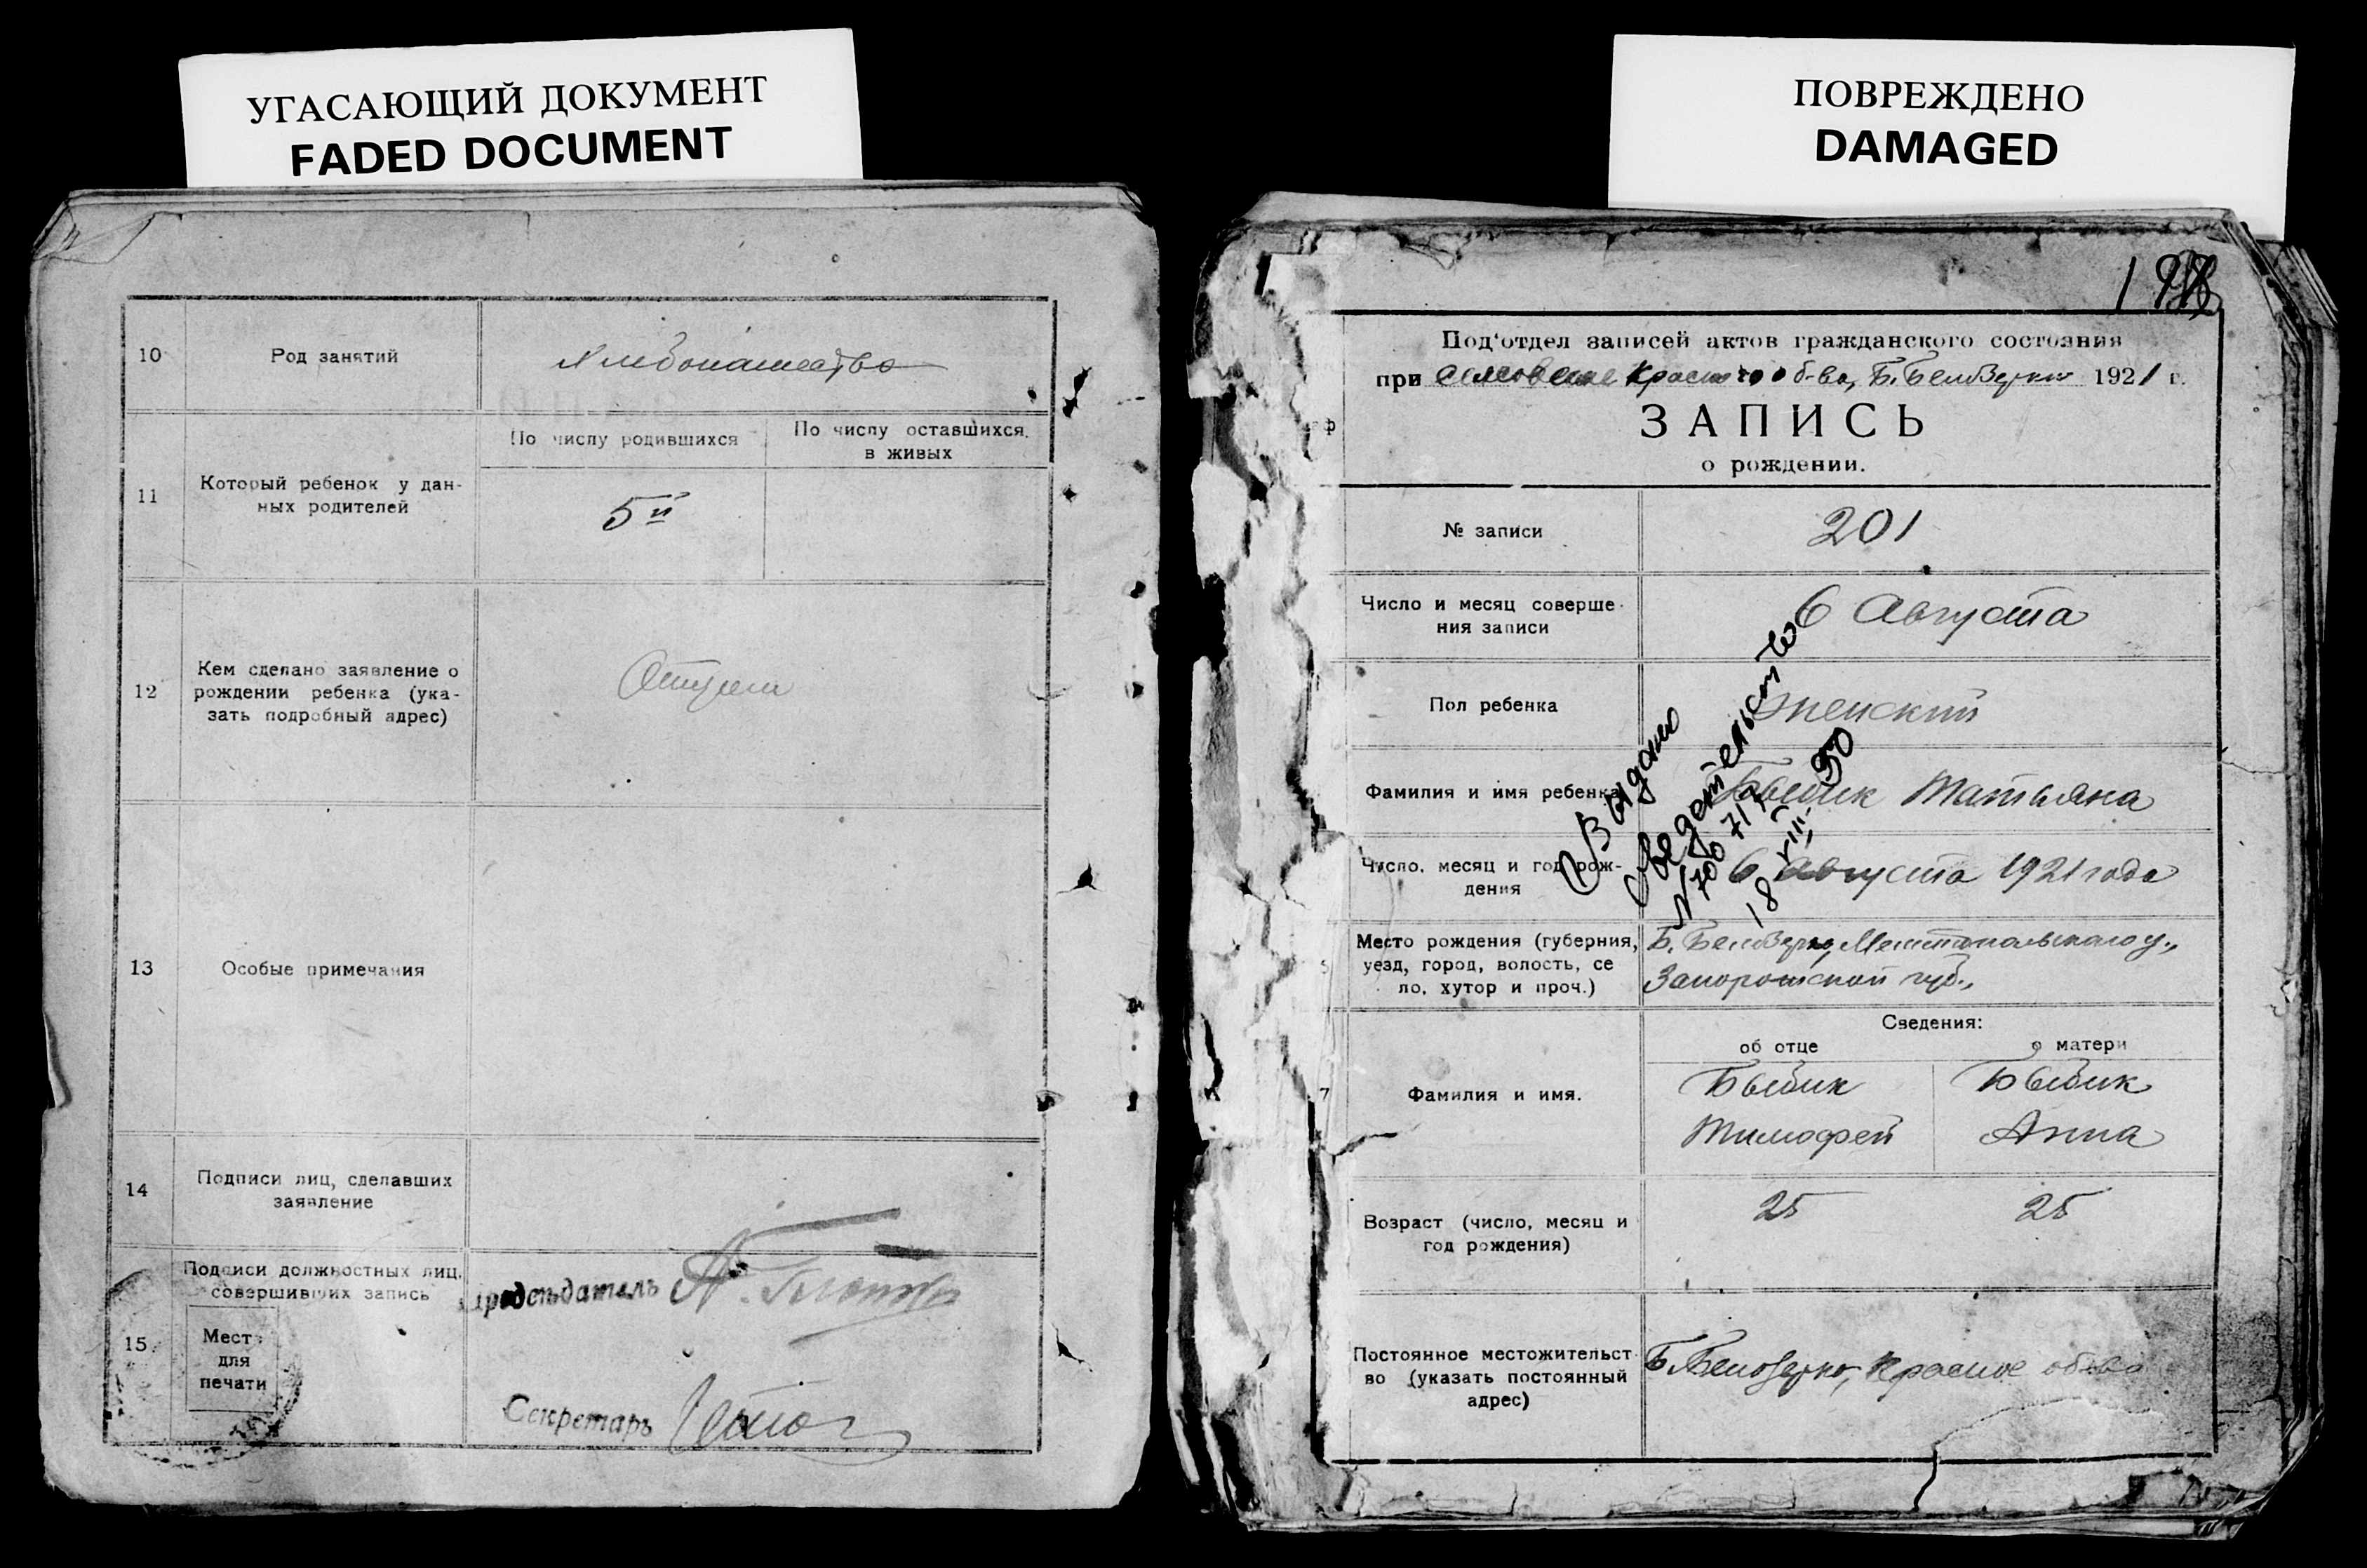 УГАСАЮЩИЙ ДОКУМЕНТ
FADED DOCUMENT
10
Род занятий
Хлебопашество
11
Который ребенок у дан-
ных родителей
По числу родившихся
По числу оставшихся
в живых
5й
12
Кем сделано заявление о
рождении ребенка (ука-
зать подробный адрес)
Отцем
13
Особые примечания
14
Подписи лиц, сделавших
заявление
15
Подписи должностных лиц,
совершивших запись
Место
для
печати
Председатель
Секретарь
ПОВРЕЖДЕНО
DAMAGED
Под'отдел записей актов гражданского состояния
при Красного об-ва, Б. Белозерки 1921 г.
ЗАПИСЬ
о рождении.
№ записи
201
Число и месяц соверше-
ния записи
6 Августа
Пол ребенка
женский
Фамилия и имя ребенка
Быбик Татьяна
Число, месяц и год рож-
дения
6 Августа 1921 года
Выдано
свидетельство
18 VIII 50
Место рождения (губерния,
уезд, город, волость, се
ло, хутор и проч.)
Б. Белозерка, Мелитопольского у.,
Запорожской губ.,
Сведения:
об отце
о матери
7
Фамилия и имя.
Быбик
Тимофей
Быбик
Анна
Возраст (число, месяц и
год рождения)
25
25
Постоянное местожительст-
во (указать постоянный
адрес)
Б. Белозерка, Красное об-во